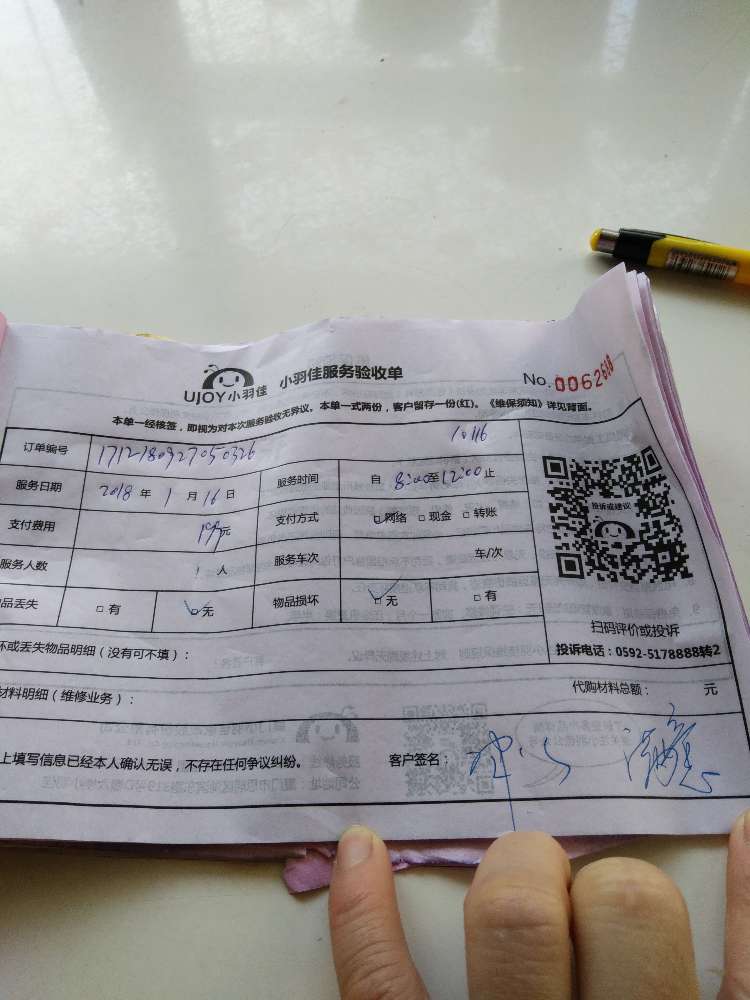 UJOY小羽佳 小羽佳服务验收单 No.0062688
本单一经核签，即视为对本次服务验收无异议。本单一式两份，客户留存一份(红)。《维保须知》详见背面。
订单编号 1712180927050326 10116
服务日期 2018 年 1 月 16 日 服务时间 自 8:00 至 12:00 止
支付费用 元 支付方式 网络 现金 转账
服务人数 1 人 服务车次 车/次
品丢失 有 无 物品损坏 无 有
投诉或建议
扫码评价或投诉
投诉电话：0592-5178888转2
坏或丢失物品明细（没有可不填）：
材料明细（维修业务）： 代购材料总额： 元
上填写信息已经本人确认无误，不存在任何争议纠纷。 客户签名：